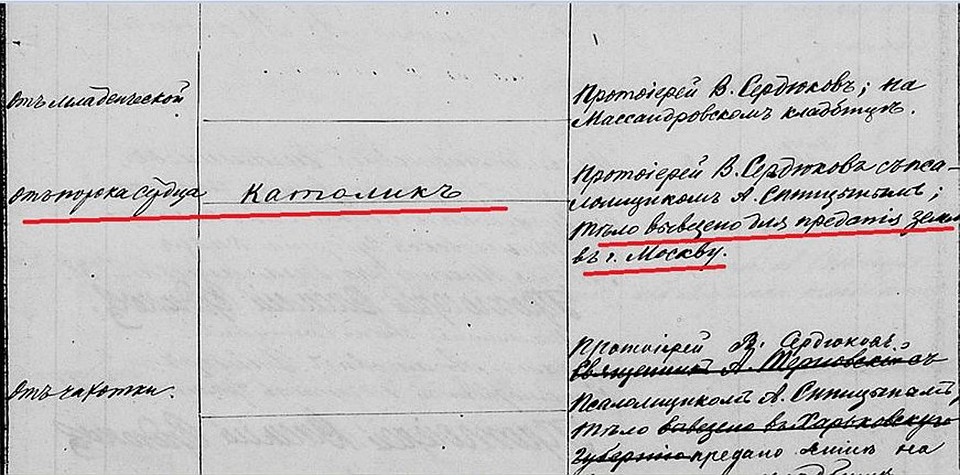 отъ младенческой
Протоіерей В. Сердюковъ; на
Массандровскомъ кладбищѣ.
отъ порока сердца
Католикъ
Протоіерей В. Сердюковъ съ пса-
ломщикомъ А. Спицынымъ;
тѣло вывезено для преданія земл
въ г. Москву.
отъ чахотки.
Протоіерей В. Сердюковъ
Священникъ А. Терновскій съ
Псаломщикомъ А. Спицынымъ,
тѣло вывезено въ Харьковскую
губернію предано землѣ на